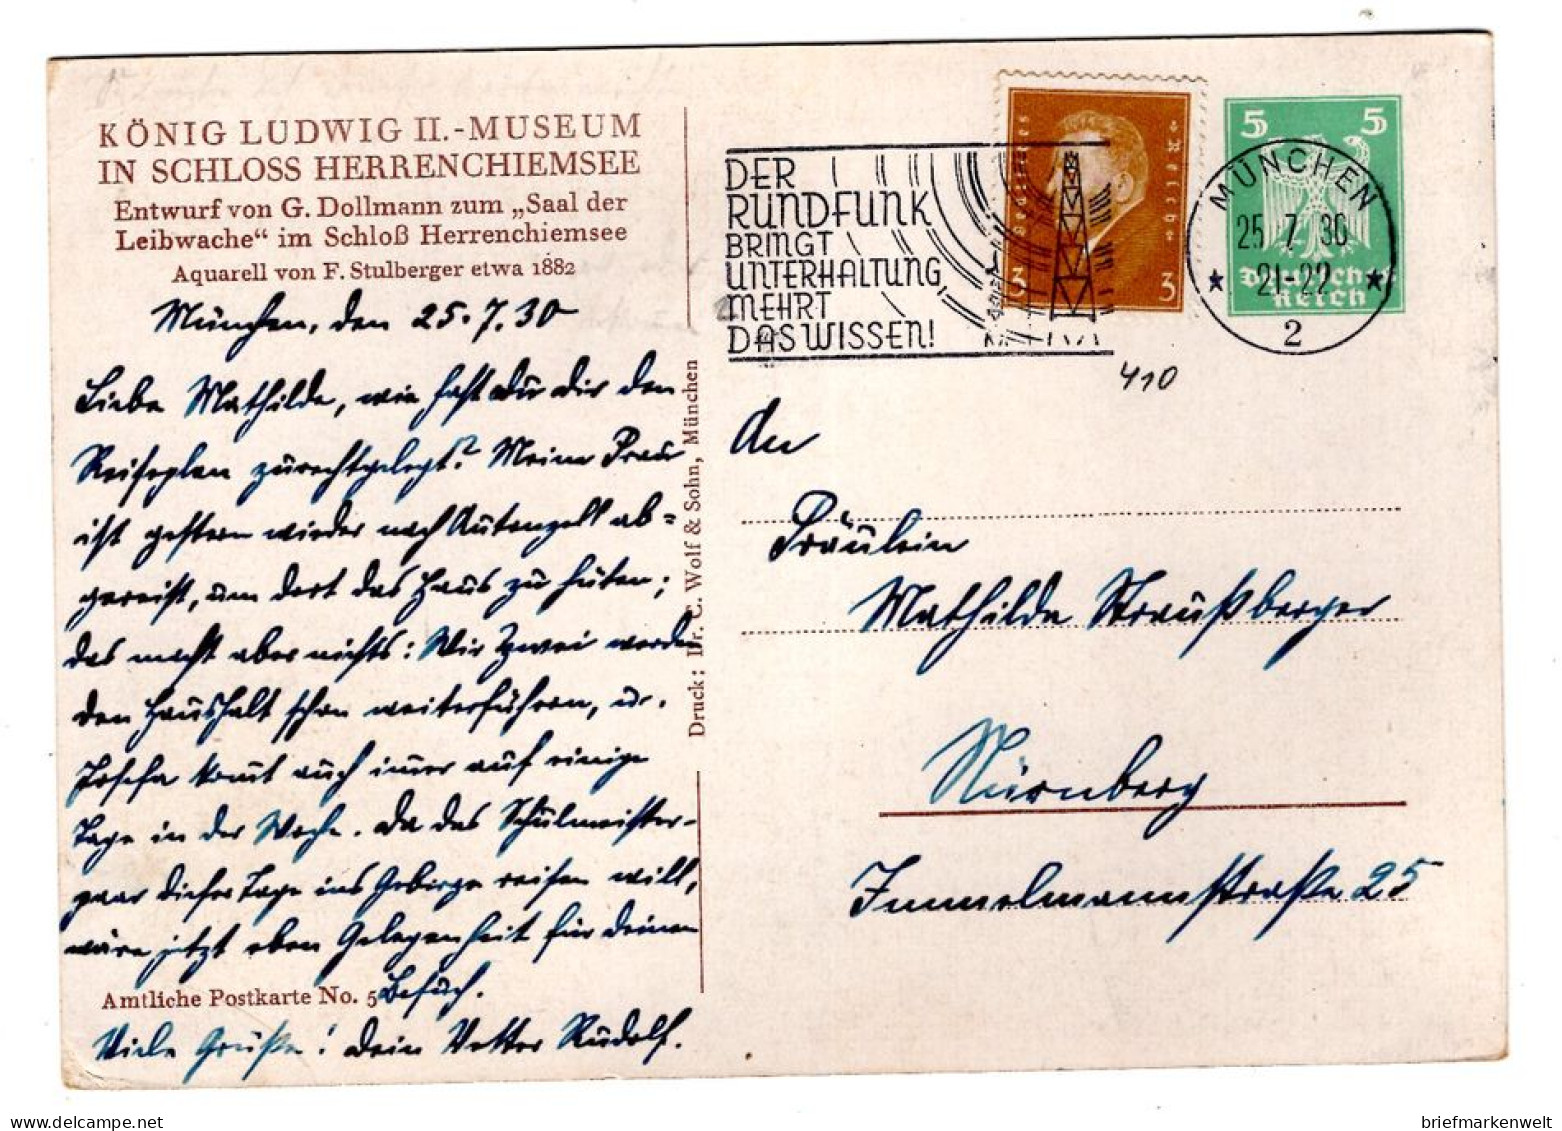 KÖNIG LUDWIG II.-MUSEUM
IN SCHLOSS HERRENCHIEMSEE
Entwurf von G. Dollmann zum „Saal der
Leibwache“ im Schloß Herrenchiemsee
Aquarell von F. Stulberger etwa 1882
München, den 25.7.30
Liebe Mathilde, wie hast Du Dir den
Reiseplan zurechtgelegt? Meine Frau
ist gestern wieder nach Autenzell ab=
gereist, um dort das Haus zu hüten;
das macht aber nichts: Wir Zwei werden
den Haushalt schon weiterführen, u.
Josefa kommt auch immer auf einige
Tage in der Woche. Da das Schulmeister-
paar dieser Tage ins Gebirge reisen will,
wäre jetzt eben Gelegenheit für deinen
Besuch.
Amtliche Postkarte No. 5
Viele Grüße! Dein Vetter Rudolf.
Druck: Dr. C. Wolf & Sohn, München
DER
RUNDFUNK
BRINGT
UNTERHALTUNG
MEHRT
DAS WISSEN!
Deutsches Reich
3 3
5 5
Deutsches
Reich
MÜNCHEN
25.7.30
* 21-22 *
2
410
An
Fräulein
Mathilde Straußberger
Nürnberg
Immelmannstraße 25
briefmarkenwelt